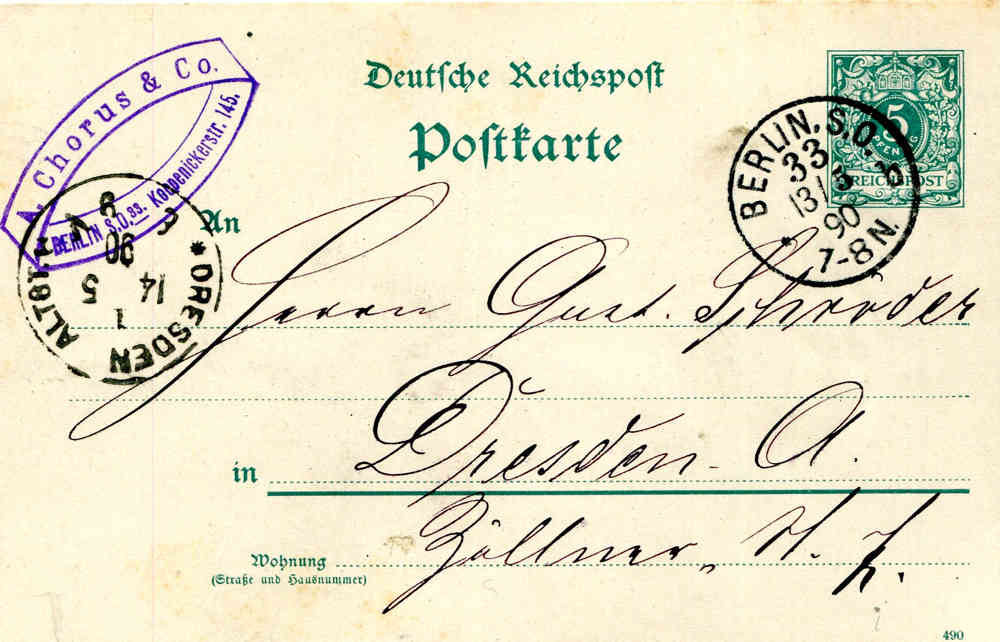 Deutsche Reichspost
Postkarte
5
PFENNIG
REICHSPOST
A. Chorus & Co.
BERLIN S.O.33. Koepenickerstr. 145.
BERLIN. S.O.
33
13/5
90
7-8 N.
* b
An
Herrn Gust. Schröder
* DRESDEN ALTST.
1
14 5
90
in Dresden. A.
Wohnung Zöllner
(Straße und Hausnummer)
490